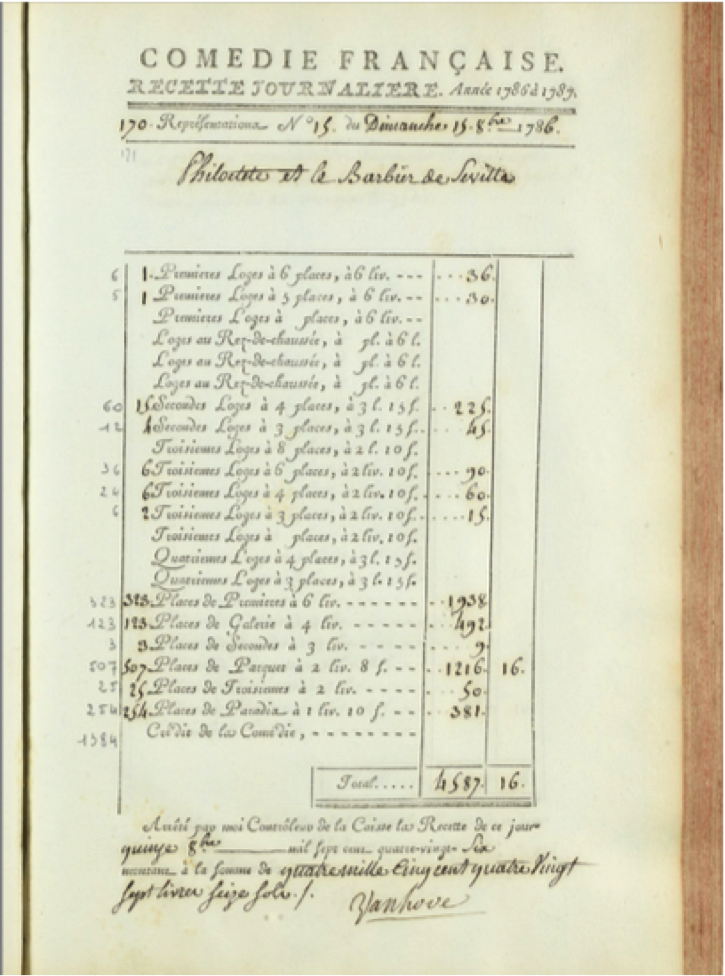 COMEDIE FRANÇAISE.
RECETTE JOURNALIERE. Année 1786 à 1787.
170. Représentations N° 15. du Dimanche 15. 8bre 1786.
171
Philoctete et le Barbier de Seville
6 1. Premieres Loges à 6 places, à 6 liv. --- 36.
5 1 Premieres Loges à 5 places, à 6 liv. -- 30.
Premieres Loges à places, à 6 liv. --
Loges au Rez-de-chaussée, à pl. à 6 l.
Loges au Rez-de-chaussée, à pl. à 6 l.
Loges au Rez-de-chaussée, à pl. à 6 l.
60 15 Secondes Loges à 4 places, à 3 l. 15 s. 225.
12 4 Secondes Loges à 3 places, à 3 l. 15 s. 45.
Troisiemes Loges à 8 places, à 2 l. 10 s.
36 6 Troisiemes Loges à 6 places, à 2 liv. 10 s. 90.
24 6 Troisiemes Loges à 4 places, à 2 liv. 10 s. 60.
6 2 Troisiemes Loges à 3 places, à 2 liv. 10 s. 15.
Troisiemes Loges à places, à 2 liv. 10 s.
Quatriemes Loges à 4 places, à 3 l. 15 s.
Quatriemes Loges à 3 places, à 3 l. 15 s.
323 323 Places de Premieres à 6 liv. ------ 1938
123 123 Places de Galerie à 4 liv. ----- 492
3 3 Places de Secondes à 3 liv. ----- 9.
507 507 Places de Parquet à 2 liv. 8 s. -- 1216. 16.
25 25 Places de Troisiemes à 2 liv. --- 50
254 254 Places de Paradis à 1 liv. 10 s. -- 381.
Crédit de la Comédie, --------
1384
Total..... 4587. 16.
Arrêté par moi Contrôleur de la Caisse la Recette de ce jour
quinze 8bre mil sept cent quatre-vingt-Six
montant à la somme de quatre mille Cinq cent quatre Vingt
sept livres seize sols ./.
Vanhove